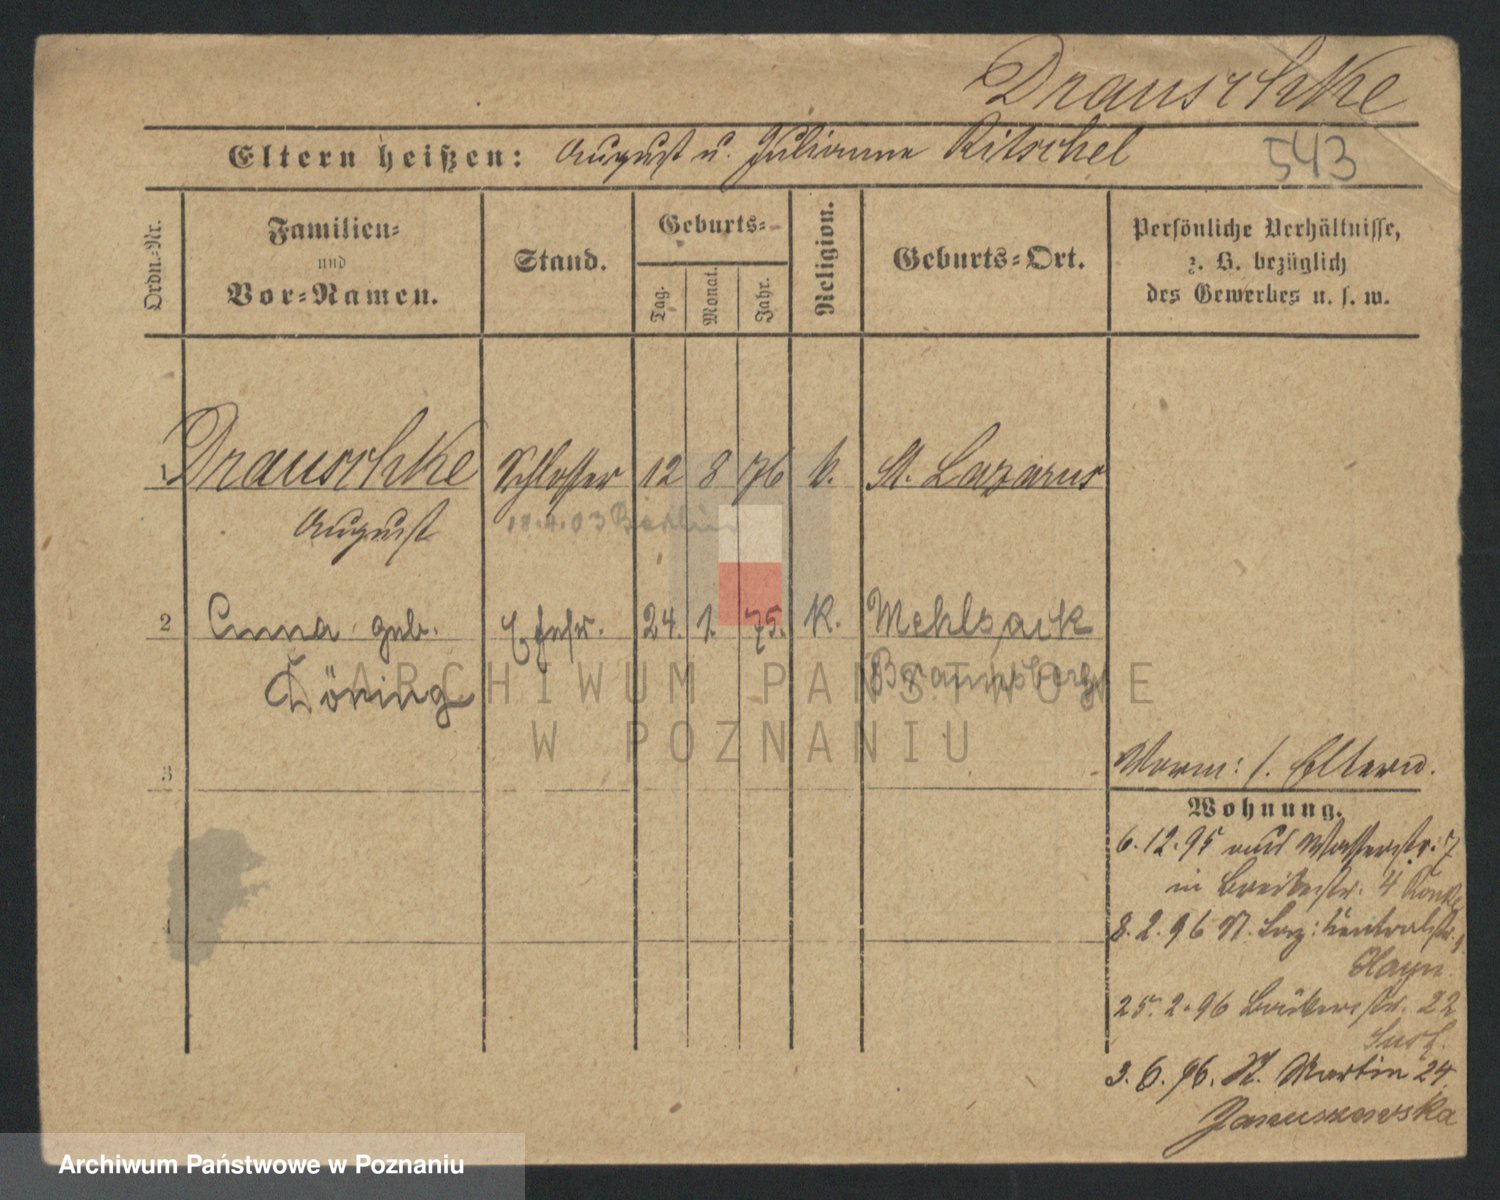 Drauschke
Eltern heißen: August u. Julianne Ritschel
543
Ordn.-Nr.
Familien-
und
Vor-Namen.
Stand.
Geburts-
Tag.
Monat.
Jahr.
Religion.
Geburts-Ort.
Persönliche Verhältnisse,
z. B. bezüglich
des Gewerbes u. s. w.
1 Drauschke Schlosser 12 8 76 k. St. Lazarus
August 18.4.03 Berlin
2 Anna geb. Ehefr. 24. 1. 75. K. Mehlsack
Döring Braunsberg
ARCHIWUM PAŃSTWOWE
W POZNANIU
3
Vorm: s. Eltern.
Wohnung.
6.12.95 aus Wasserstr. 7
in Breitestr. 4
4
8.2.96 St. Laz: Centralstr.
Hayn
25.2.96 Bäckerstr. 22
3.6.96. St. Martin 24
Januszewska
Archiwum Państwowe w Poznaniu